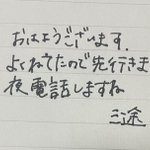 おはようございます.
よくねてたので先行きま
夜電話しますね
三途